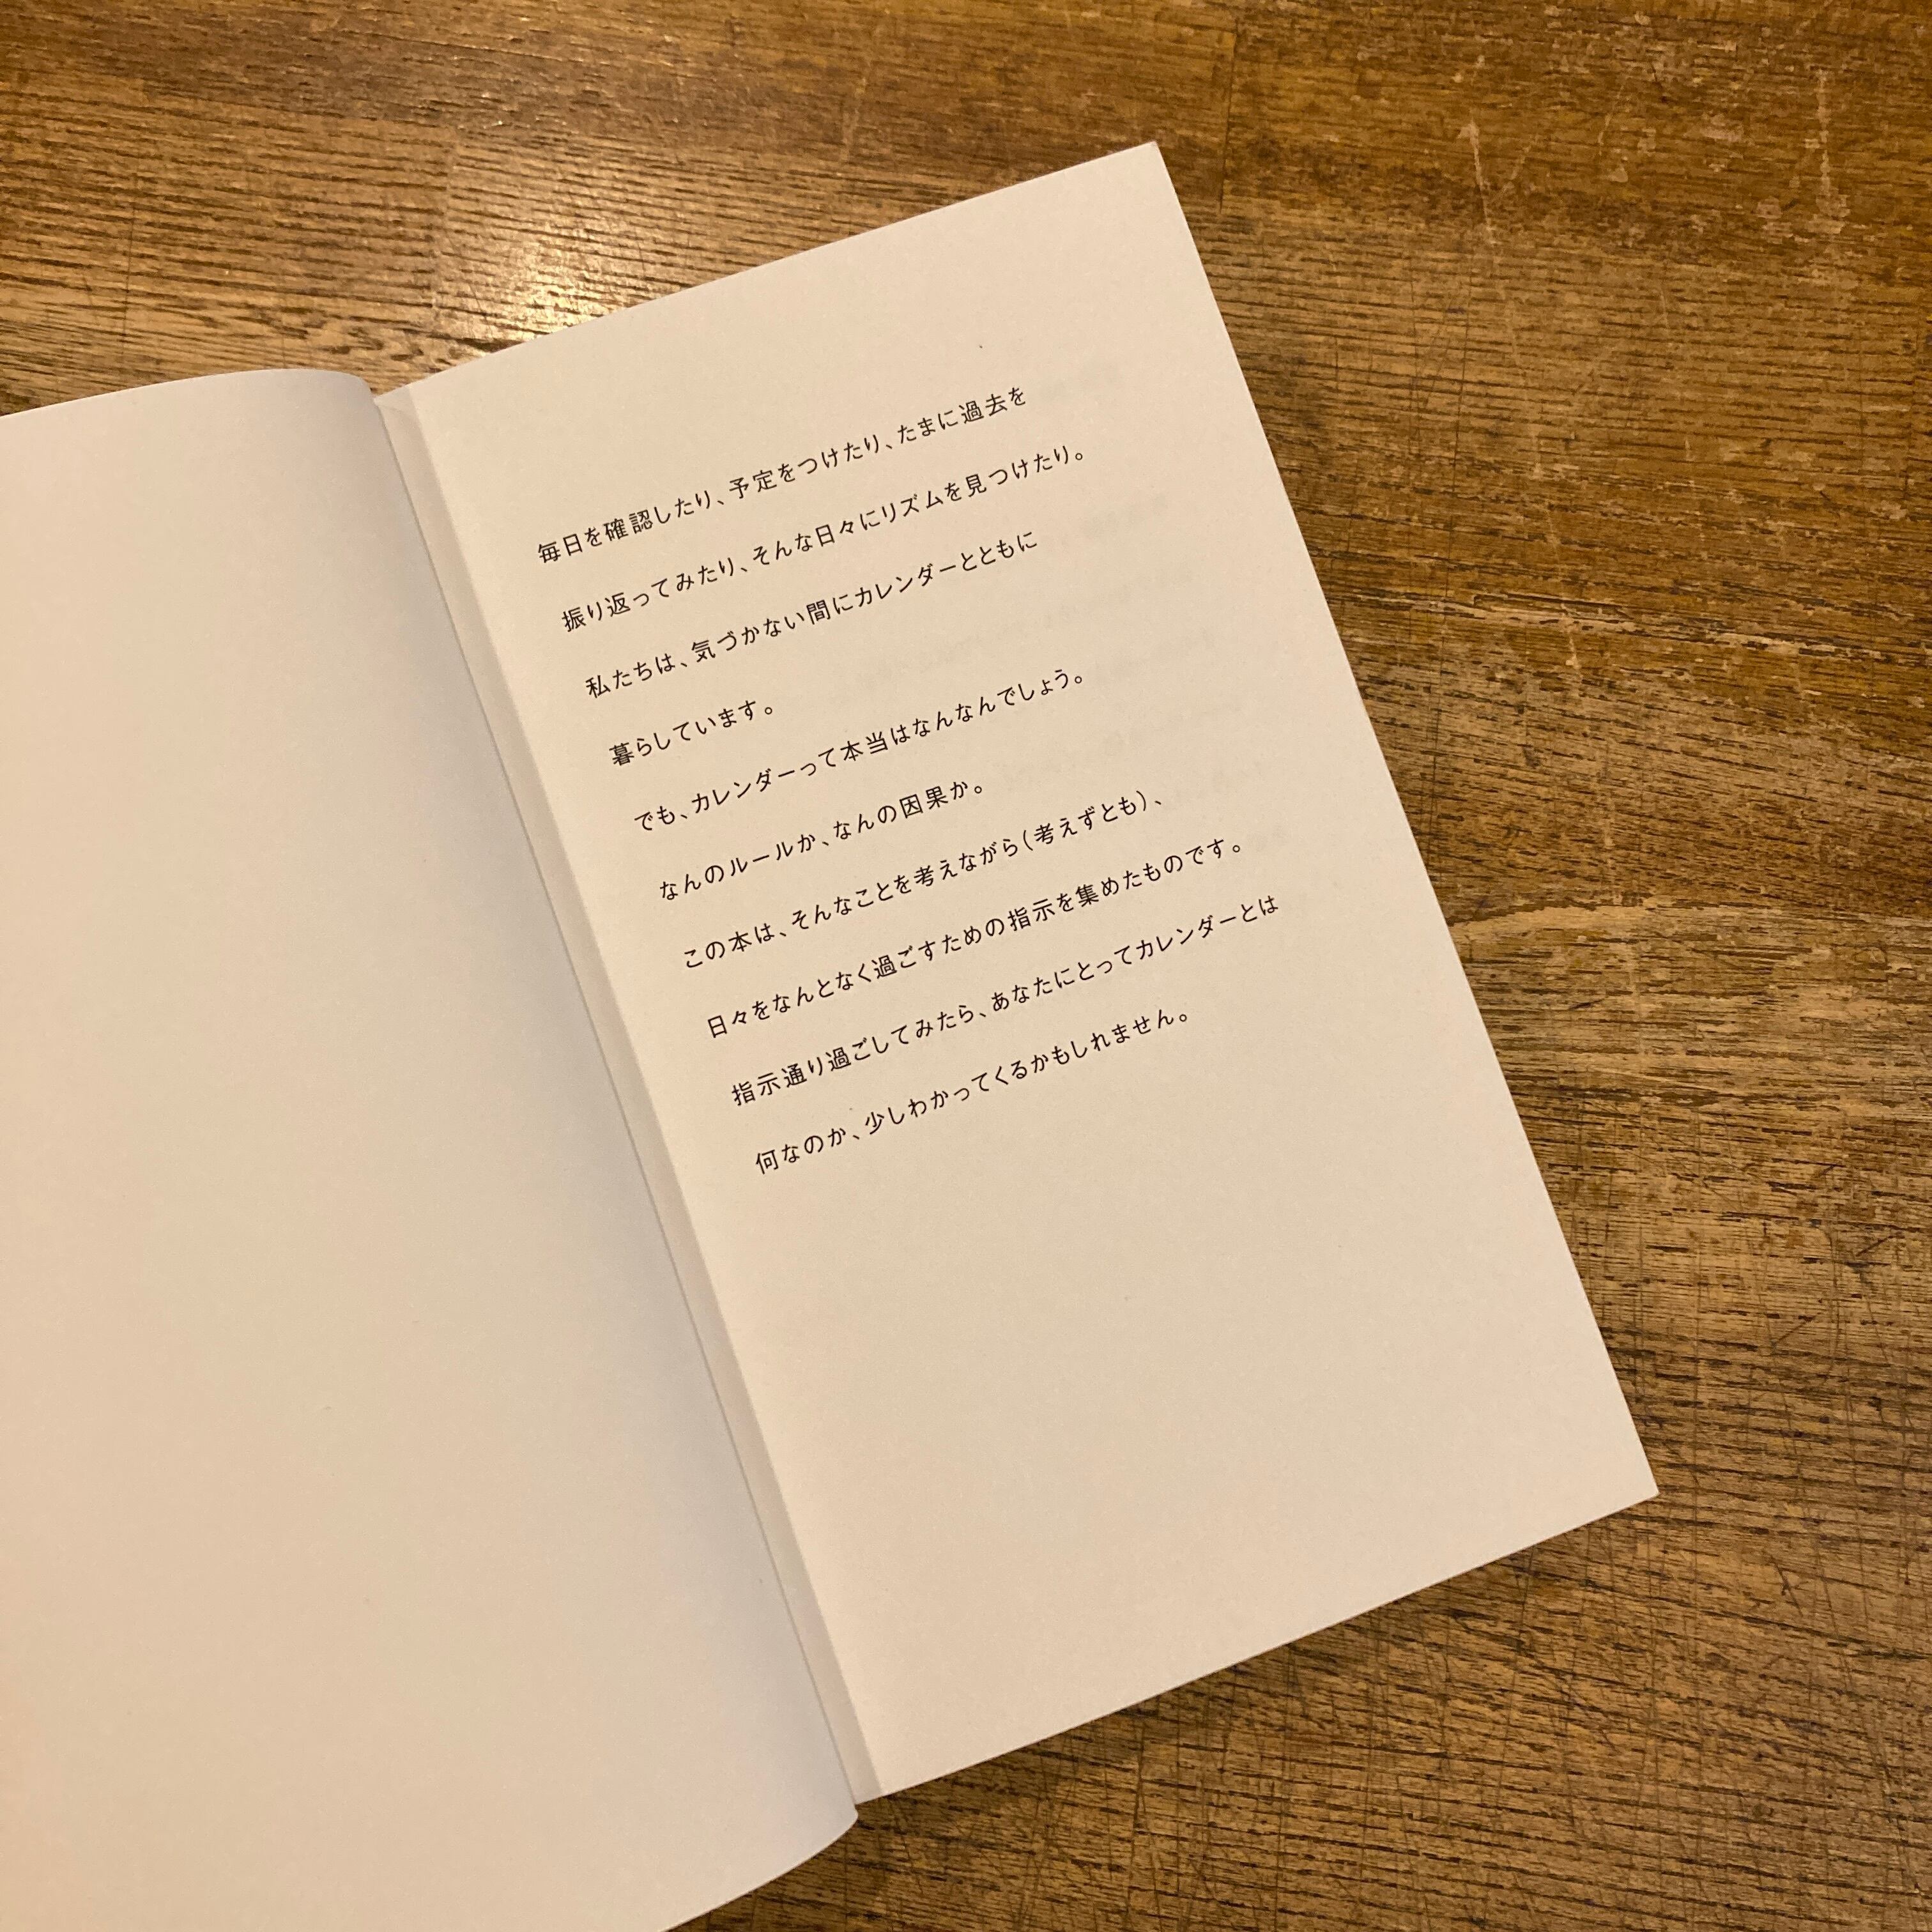 毎日を確認したり、予定をつけたり、たまに過去を
振り返ってみたり、そんな日々にリズムを見つけたり。
私たちは、気づかない間にカレンダーとともに
暮らしています。
でも、カレンダーって本当はなんなんでしょう。
なんのルールか、なんの因果か。
この本は、そんなことを考えながら(考えずとも)、
日々をなんとなく過ごすための指示を集めたものです。
指示通り過ごしてみたら、あなたにとってカレンダーとは
何なのか、少しわかってくるかもしれません。